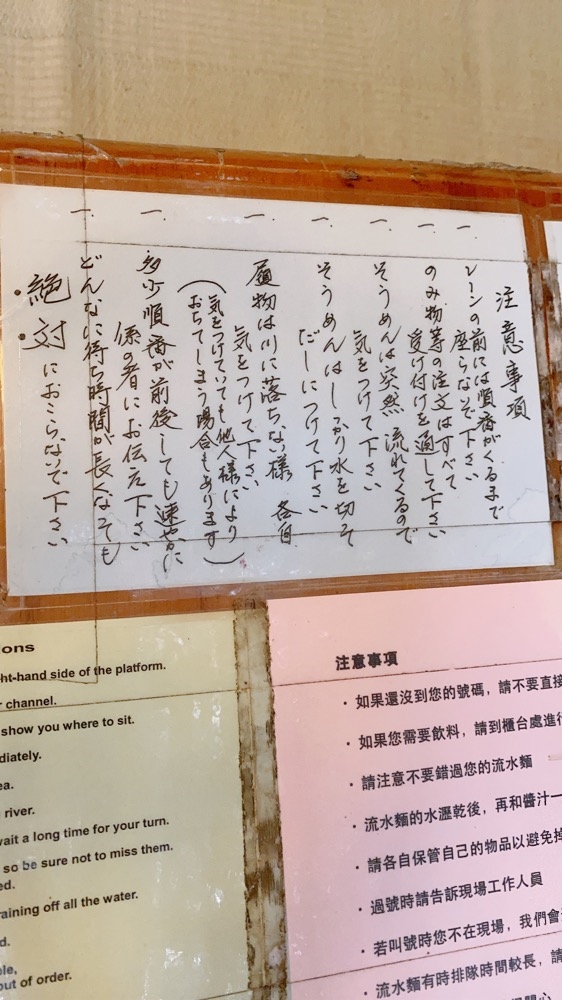 注意事項
一、レーンの前には順番がくるまで
座らないで下さい
一、のみ物等の注文はすべて
受け付けを通して下さい
一、そうめんは突然 流れてくるので
気をつけて下さい
一、そうめんはしっかり水を切って
だしにつけて下さい
一、履物は川に落ちない様 各自
気をつけて下さい
(気をつけていても他人様により
おちてしまう場合もあります)
一、多少順番が前後しても速やかに
係の者にお伝え下さい
一、どんなに待ち時間が長くなっても
絶対におこらないで下さい
ons
ht-hand side of the platform.
channel.
show you where to sit.
diately.
ea.
river.
wait a long time for your turn.
so be sure not to miss them.
ed.
raining off all the water.
d.
ble,
out of order.
注意事項
・如果還沒到您的號碼，請不要直接
・如果您需要飲料，請到櫃台處進行
・請注意不要錯過您的流水麵
・流水麵的水瀝乾後，再和醬汁一
・請各自保管自己的物品以避免掉
・過號時請告訴現場工作人員
・若叫號時您不在現場，我們會
・流水麵有時排隊時間較長，請